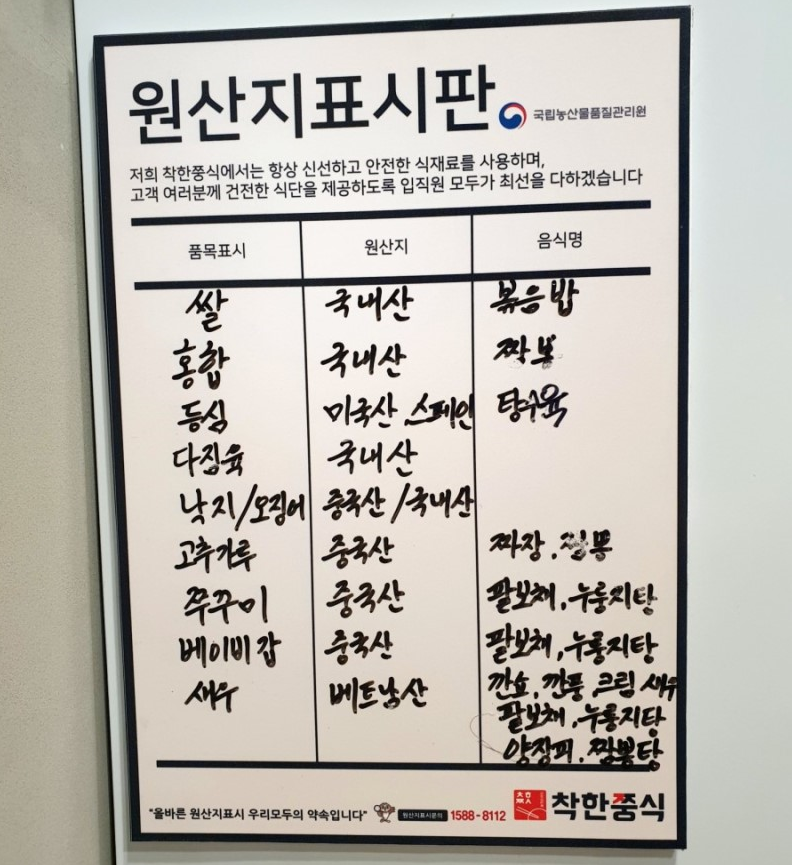 원산지표시판
국립농산물품질관리원
저희 착한쭝식에서는 항상 신선하고 안전한 식재료를 사용하며,
고객 여러분께 건전한 식단을 제공하도록 입직원 모두가 최선을 다하겠습니다
품목표시 원산지 음식명
쌀 국내산 볶음밥
홍합 국내산 짬뽕
등심 미국산, 스페인 탕수육
다짐육 국내산
낙지/오징어 중국산/국내산
고추가루 중국산 짜장, 짬뽕
쭈꾸미 중국산 팔보채, 누룽지탕
베이비갑 중국산 팔보채, 누룽지탕
새우 베트남산 깐쇼, 깐풍, 크림 새우
팔보채, 누룽지탕
양장피, 짬뽕탕
"올바른 원산지표시 우리모두의 약속입니다" 원산지표시문의 1588-8112 착한쭝식